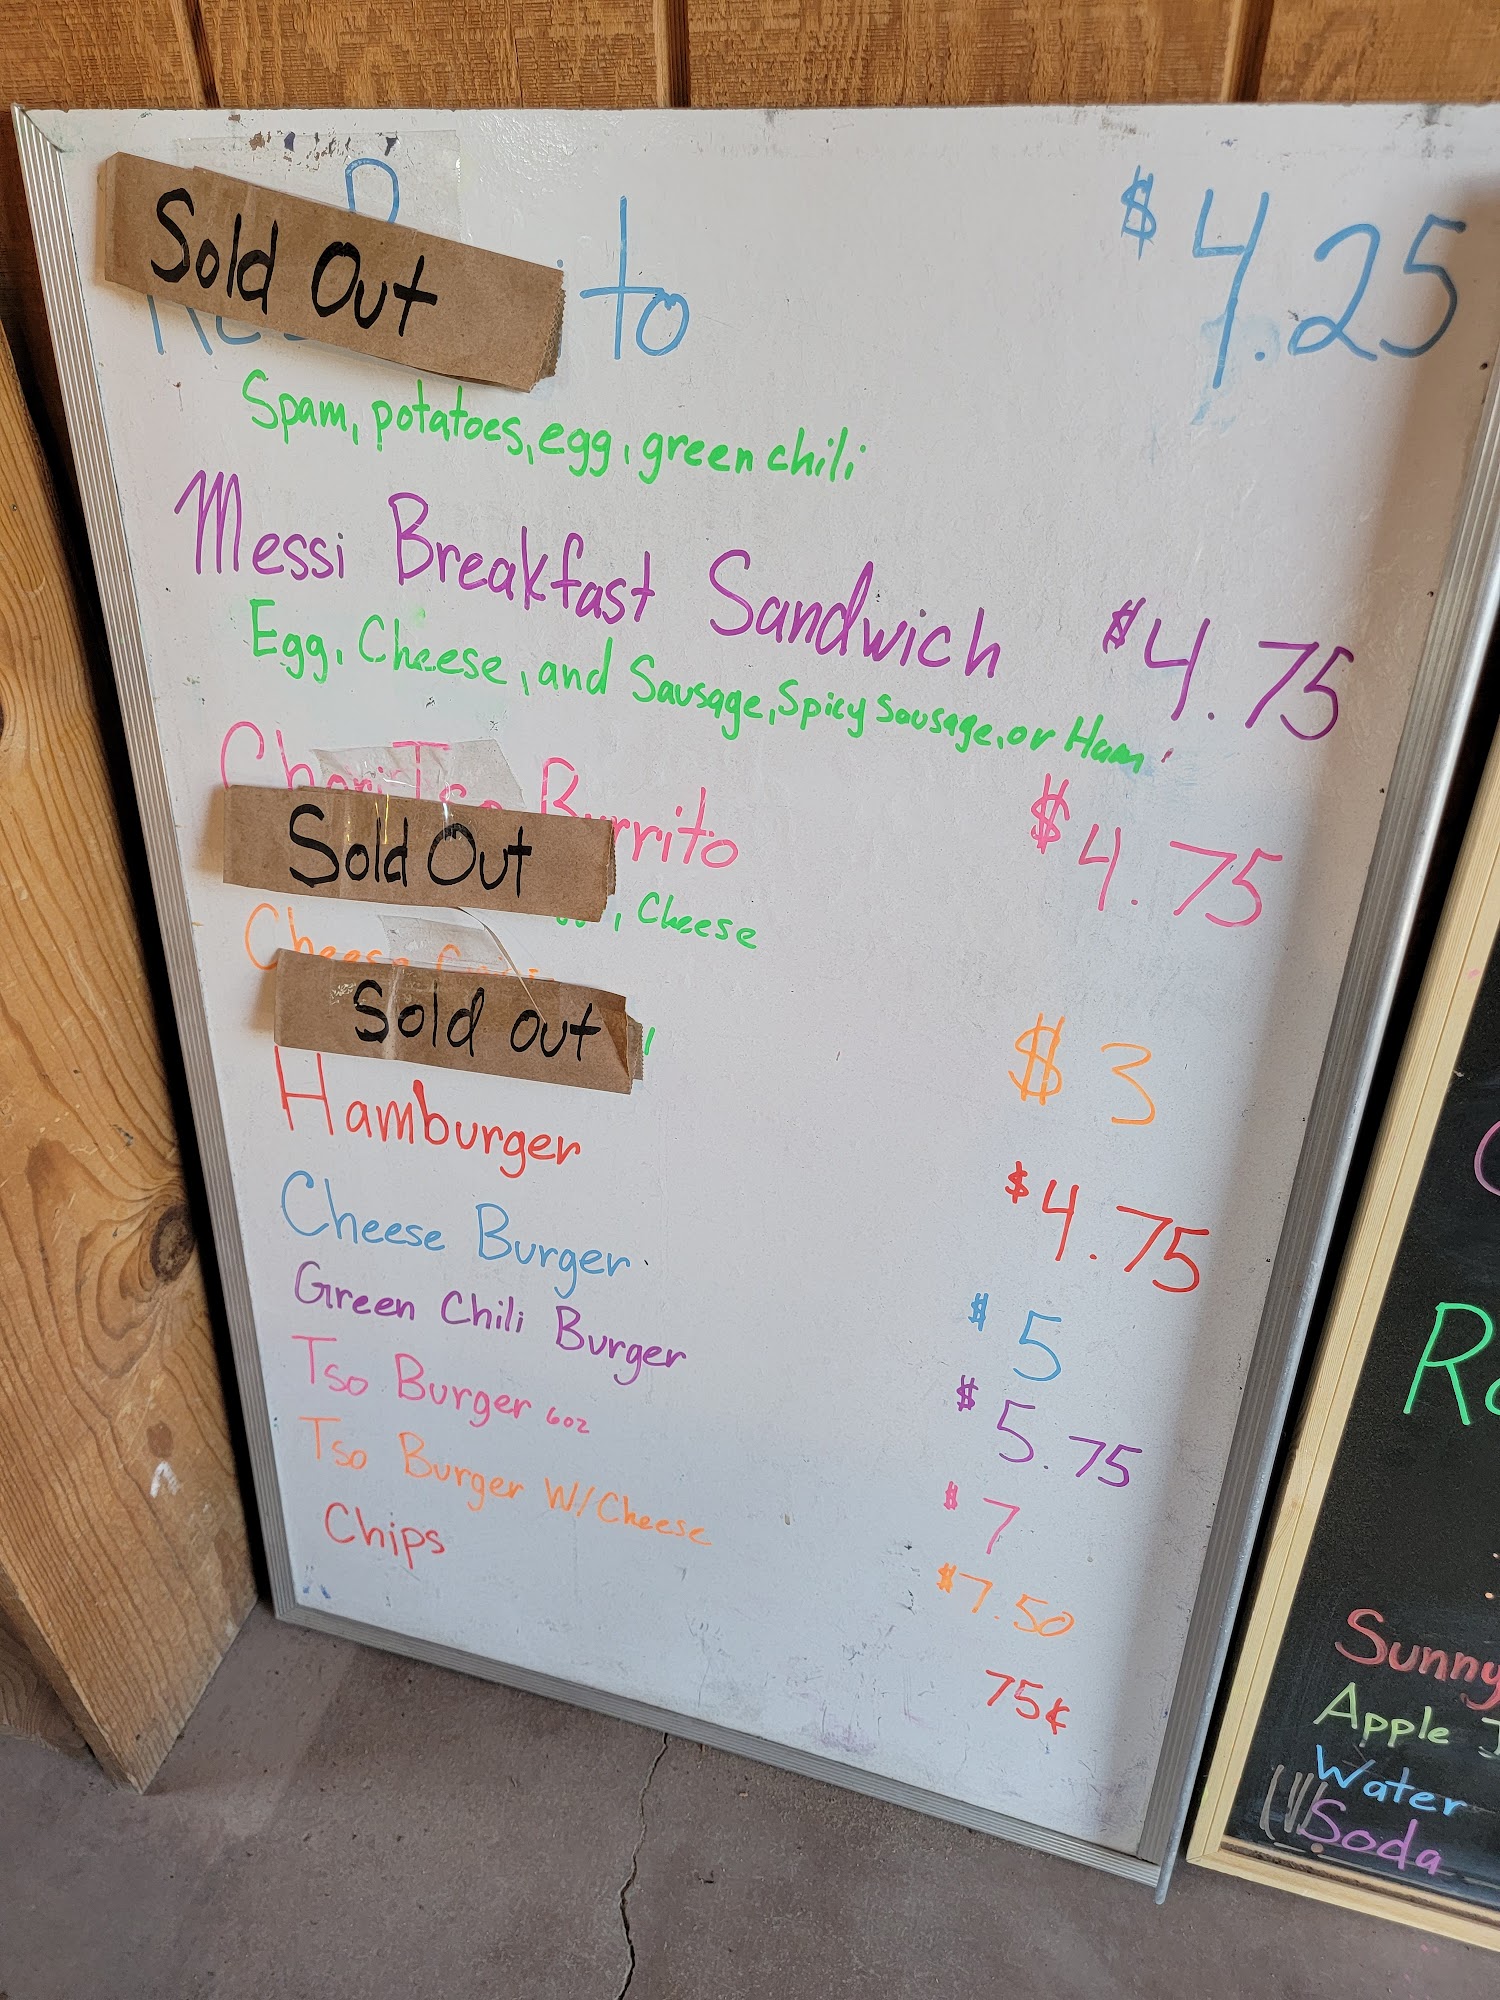 Sold Out
to
$4.25
Spam, potatoes, egg, green chili
Messi Breakfast Sandwich $4.75
Egg, Cheese, and Sausage, Spicy Sausage, or Ham
Burrito $4.75
Sold Out
, Cheese
Cheese
Sold out
$3
Hamburger $4.75
Cheese Burger $5
Green Chili Burger $5.75
Tso Burger 6oz $7
Tso Burger W/Cheese $7.50
Chips 75¢
Sunny
Apple
Water
Soda